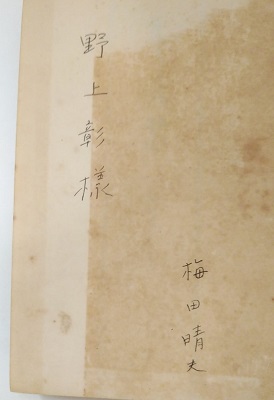 野上彰様
梅田晴夫